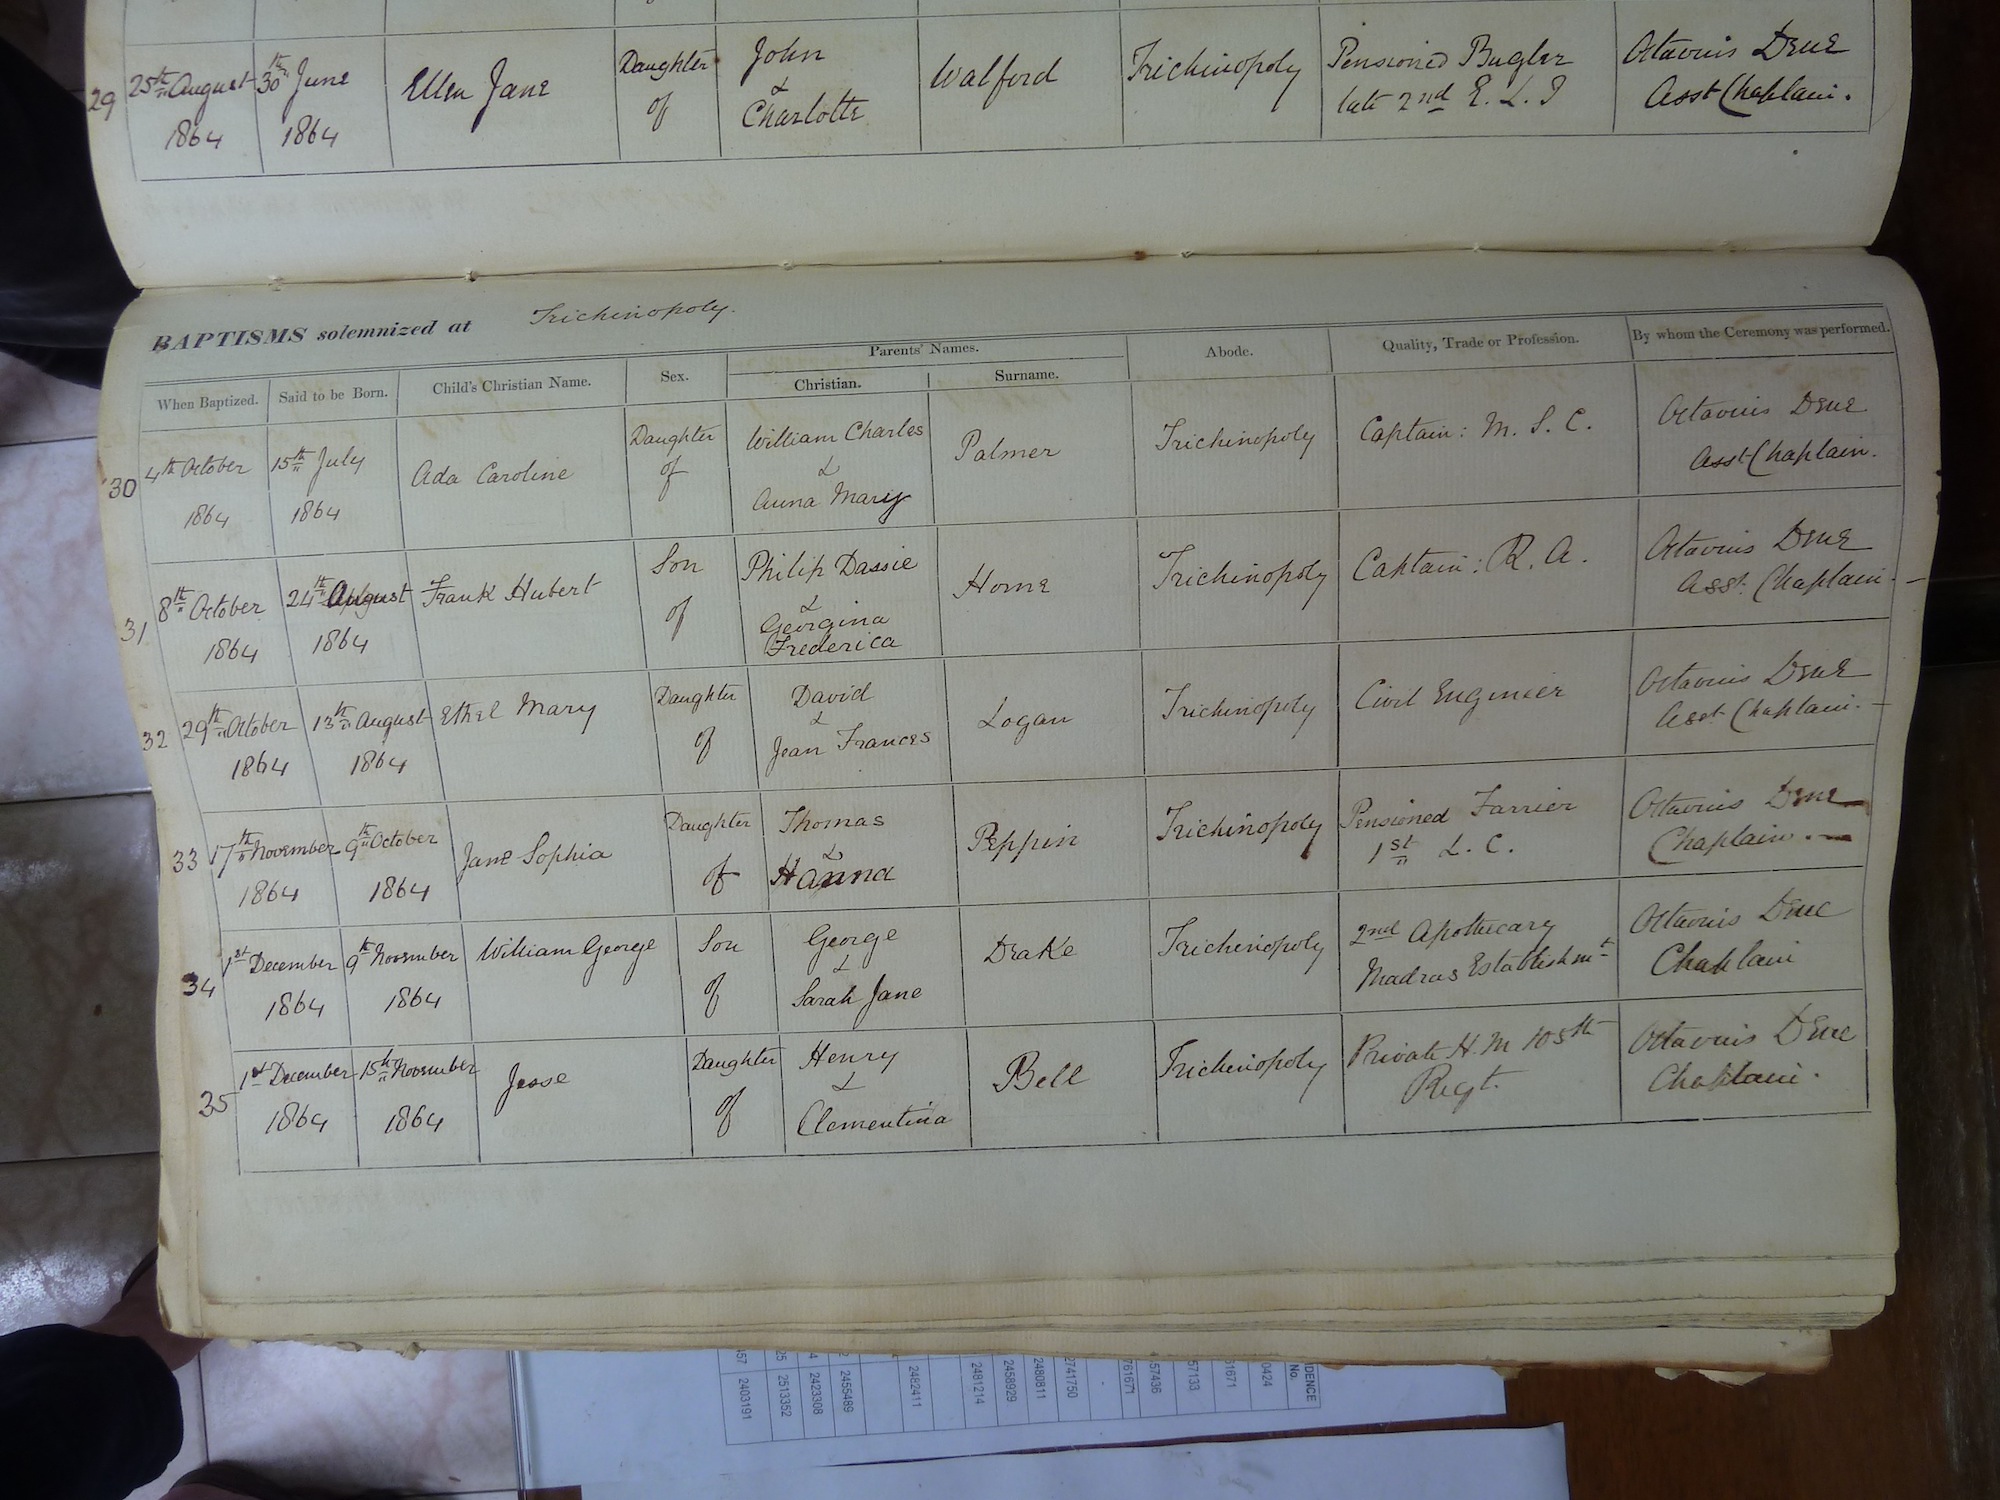 29 25th August 1864 30th June 1864 Ellen Jane Daughter of John & Charlotte Walford Trichinopoly Pensioned Bugler late 2nd E. L. I Octavius Dene Asst Chaplain.
BAPTISMS solemnized at Trichinopoly.
When Baptized. Said to be Born. Child's Christian Name. Sex. Parents' Names. Christian. Surname. Abode. Quality, Trade or Profession. By whom the Ceremony was performed.
30 4th October 1864 15th July 1864 Ada Caroline Daughter of William Charles & Anna Mary Palmer Trichinopoly Captain: M. S. C. Octavius Dene Asst Chaplain.
31 8th October 1864 24th August 1864 Frank Hubert Son of Philip Dassie & Georgina Frederica Home Trichinopoly Captain: R. A. Octavius Dene Asst. Chaplain-
32 29th October 1864 13th August 1864 Ethel Mary Daughter of David & Jean Frances Logan Trichinopoly Civil Enginier Octavius Dene Asst Chaplain.-
33 17th November 1864 9th October 1864 Jane Sophia Daughter of Thomas & Hanna Peppin Trichinopoly Pensioned Farrier 1st L. C. Octavius Dene Chaplain.-
34 1st December 1864 9th November 1864 William George Son of George & Sarah Jane Drake Trichinopoly 2nd Apothecary Madras Establishmt Octavius Dene Chaplain
35 1st December 1864 15th November 1864 Jesse Daughter of Henry & Clementina Bell Trichinopoly Private H. M 105th Regt. Octavius Dene Chaplain.
IDENCE No.
0424
61671
57133
57436
761671
2741750
2480811
2458929
2481214
2482411
2455489
2423308
2513352
2403191